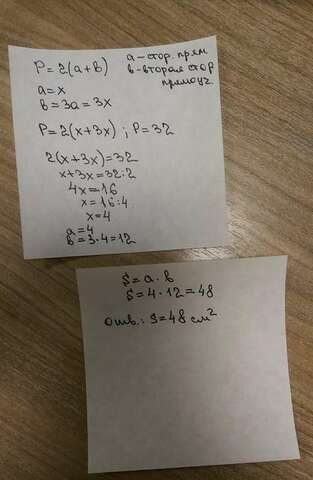 P=2(a+b)
a-стор. прям
b-вторая стор
прямоуг.
a=x
b=3a=3x
P=2(x+3x) ; P=32
2(x+3x)=32
x+3x=32:2
4x=16
x=16:4
x=4
a=4
b=3·4=12
S=a·b
S=4·12=48
отв.: S=48 см²